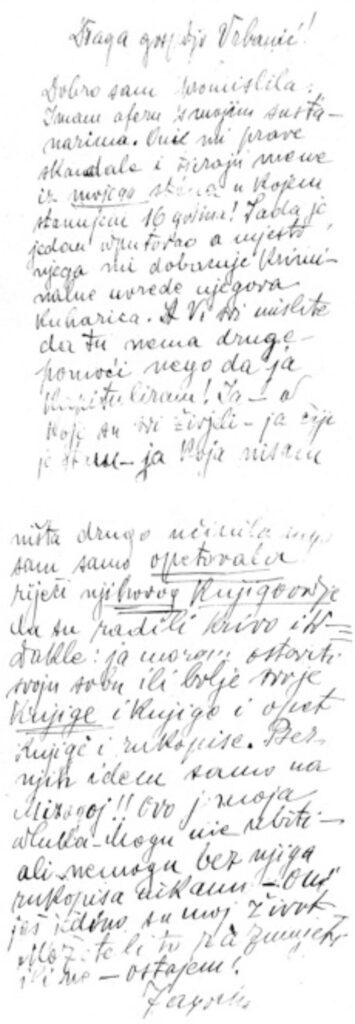 Draga gospodjo Vrbanić!
Dobro sam promislila:
Imam aferu s mojim susta-
narima. Oni mi prave
skandale i tjeraju mene
iz mojega stana u kojem
stanujem 16 godina! Sada je
jedan otputovao a mjesto
njega mi dobacuje krimi-
nalne uvrede njegova
kuharica. A Vi svi mislite
da tu nema druge
pomoći nego da ja
kapituliram! Ja – od
koje su svi živjeli – ja čiji
je stan – ja koja nisam
ništa drugo učinila nego
sam samo opetovala
riječi njihovog knjigovodje
da su radili krivo itd
Dakle: ja moram ostaviti
svoju sobu ili bolje svoje
Knjige i knjige i opet
knjige i rukopise. Bez
njih idem samo na
Mirogoj!! Ovo je moja
odluka. Mogu me ubiti –
ali nemogu bez njiga
rukopisa nikamo – Oni
još jedino su moj život
Možete li to razumjeti
ili ne – ostajem!
Zagorka